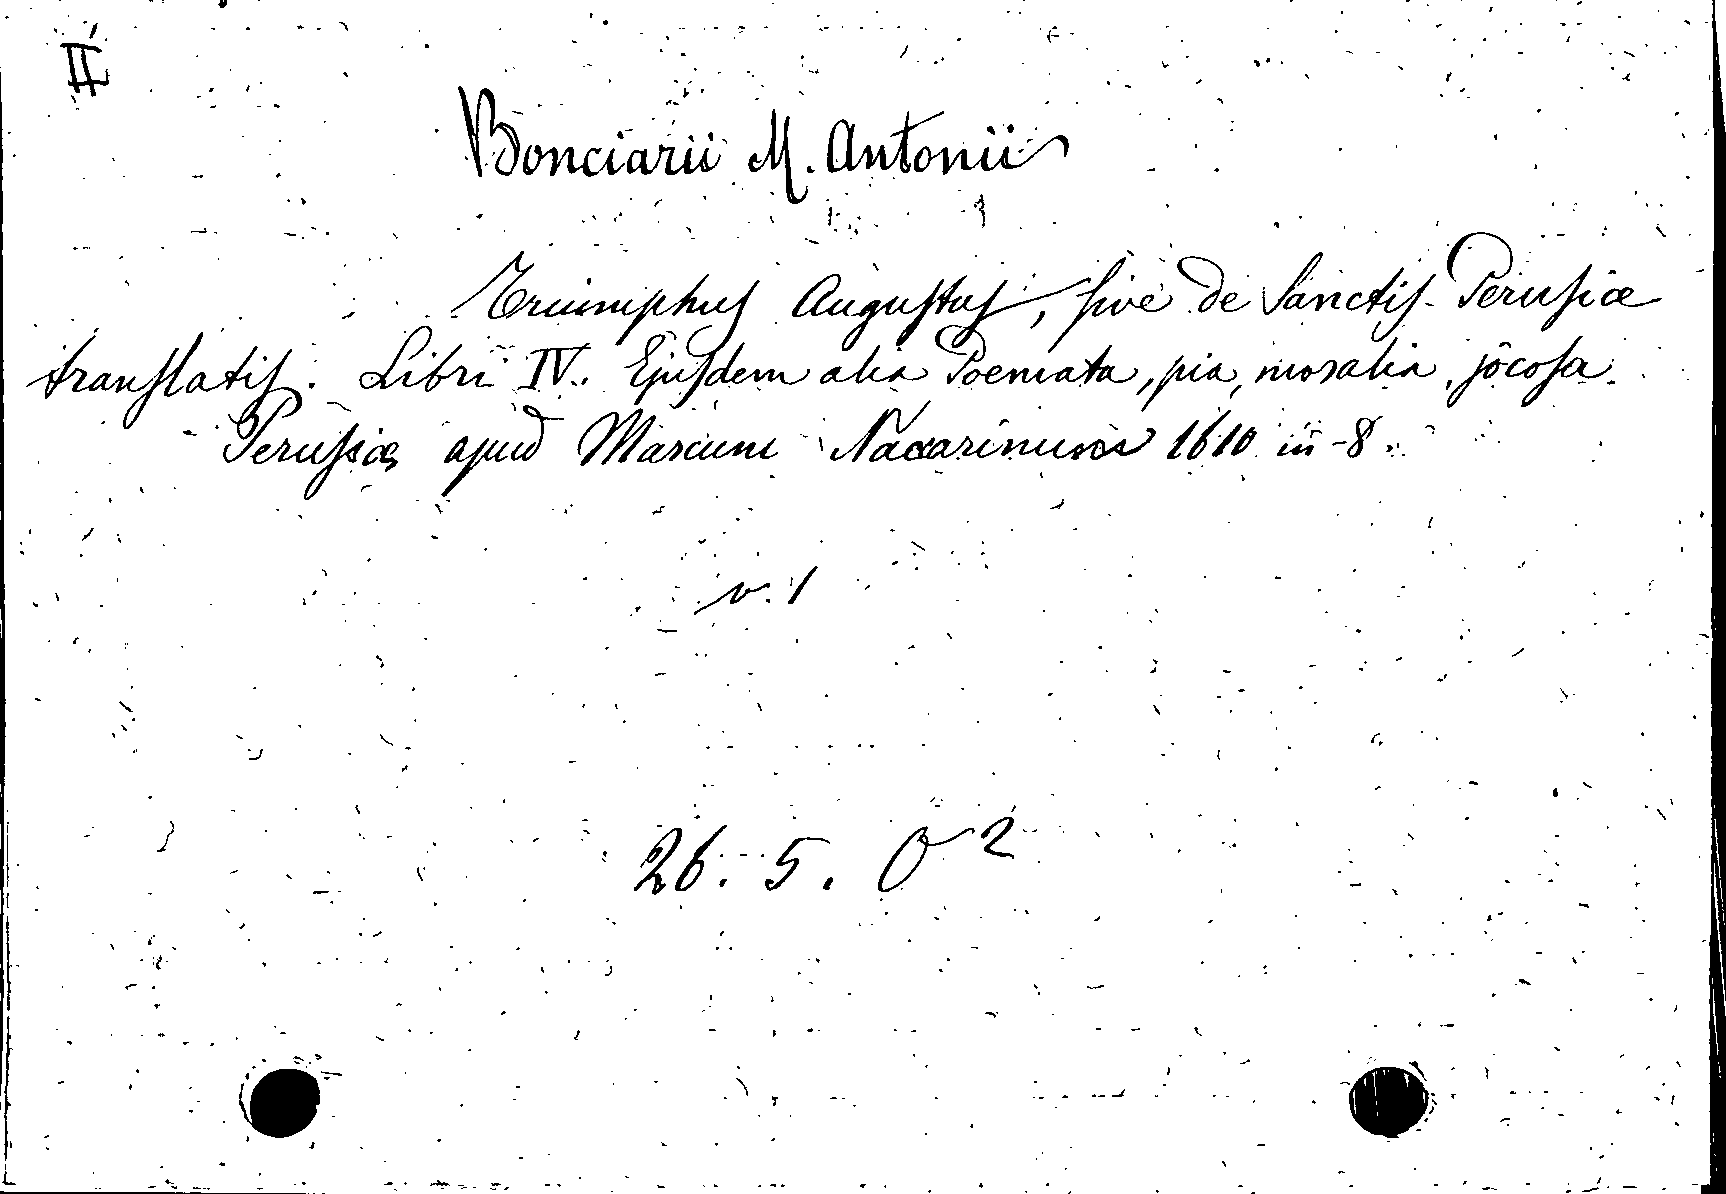 II
Bonciarii M. Antonii
Triumphus Augustus, sive de Sanctis Perusiæ
translatis. Libri IV. Ejusdem alia Poemata, pia, moralia, jocosa.
Perusiæ apud Marcum Naccarinum 1610 in-8.
v. 1
26. 5. O 2